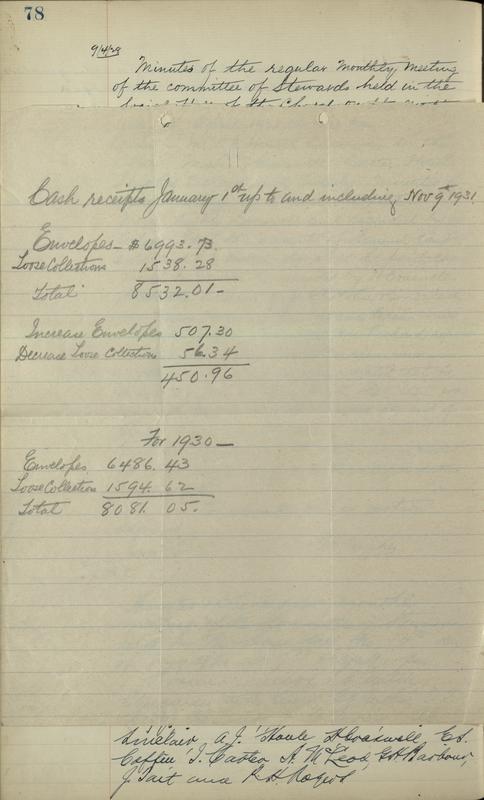 78
9/4/28
Minutes of the regular Monthly Meeting
of the committee of Stewards held in the
Cash receipts January 1st up to and including Nov 9th 1931.
Envelopes - $6993.73
Loose Collections 1538.28
Total 8532.01 -
Increase Envelopes 507.30
Decrease Loose Collections 56.34
450.96
For 1930 -
Envelopes 6486.43
Loose Collection 1594.62
Total 8081.05.
Sinclair, A.J.
Caffin, J. Caster A. McLeod, G.H. Barbour,
J. Tait and R.H. Rogers